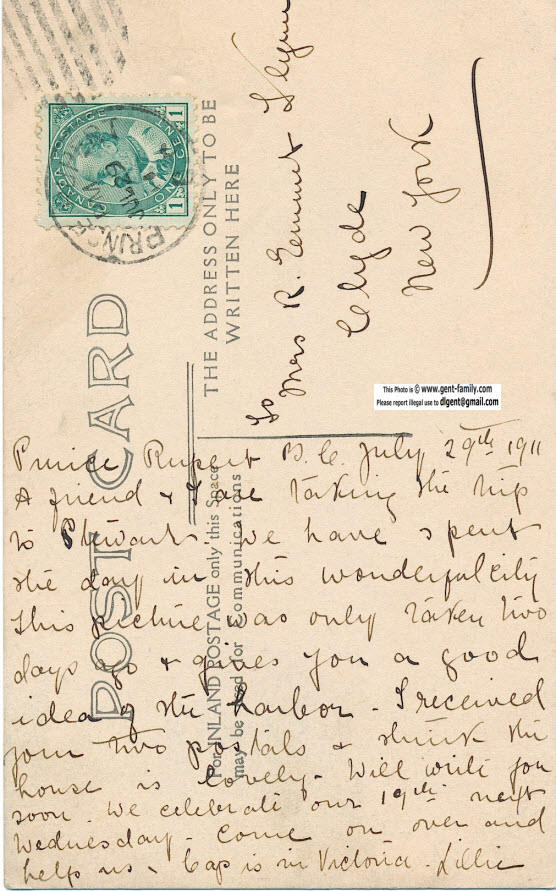 CANADA POSTAGE
ONE CENT
1 1
PRINCE RUPERT
JUL 29
POST CARD
THE ADDRESS ONLY TO BE
WRITTEN HERE
For INLAND POSTAGE only this Space
may be used for Communications
To
Mrs R. Emmet
Clyde
New York
This Photo is © www.gent-family.com
Please report illegal use to dlgent@gmail.com
Prince Rupert B.C. July 29th 1911
A friend & I are taking the trip
to Stewart we have spent
the day in this wonderful city
This picture was only taken two
days ago & gives you a good
idea of the harbor - I received
your two postals & think the
house is lovely - Will write you
soon. We celebrate our 19th next
Wednesday - Come on over and
help us - Cap is in Victoria - Lillie